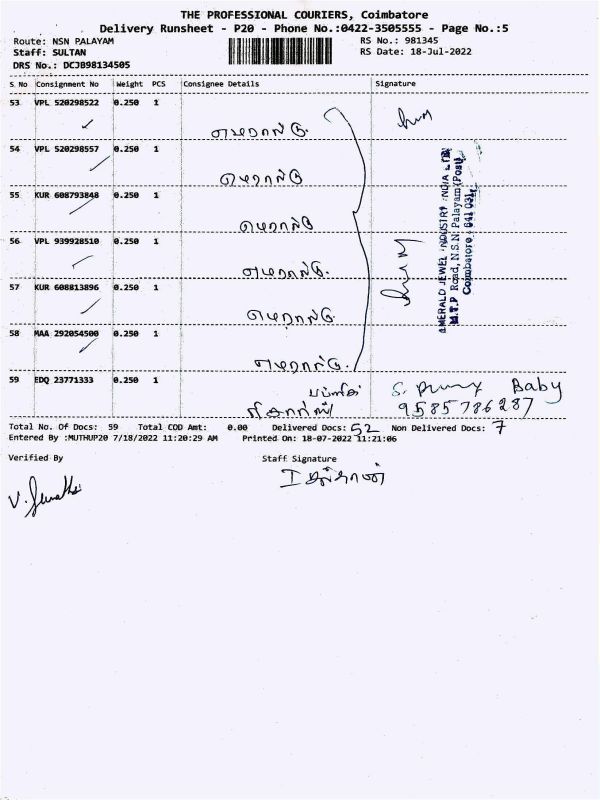 THE PROFESSIONAL COURIERS, Coimbatore
Delivery Runsheet - P20 - Phone No.:0422-3505555 - Page No.:5
Route: NSN PALAYAM RS No.: 981345
Staff: SULTAN RS Date: 18-Jul-2022
DRS No.: DCJB98134505
S No Consignment No Weight PCS Consignee Details Signature
53 VPL 520298522 0.250 1
எமரால்டு
54 VPL 520298557 0.250 1
எமரால்டு
55 KUR 608793848 0.250 1
எமரால்டு
56 VPL 939928510 0.250 1
எமரால்டு.
57 KUR 608813896 0.250 1
எமரால்டு
58 MAA 292054500 0.250 1
எமரால்டு.
EMERALD JEWEL INDUSTRY INDIA LTD
M.T.P Road, N.S.N. Palayam (Post)
Coimbatore - 641 031.
59 EDQ 23771333 0.250 1 Baby
9585786287
Total No. Of Docs: 59 Total COD Amt: 0.00 Delivered Docs: 52 Non Delivered Docs: 7
Entered By :MUTHUP20 7/18/2022 11:20:29 AM Printed On: 18-07-2022 11:21:06
Verified By Staff Signature